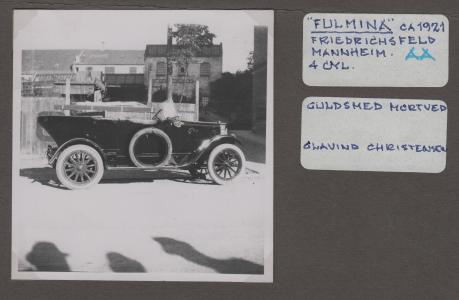 "FULMINA" CA 1921
FRIEDRICHSFELD
MANNHEIM.
4 CYL.
GULDSMED MORTVED
OLAVIND CHRISTENSEN